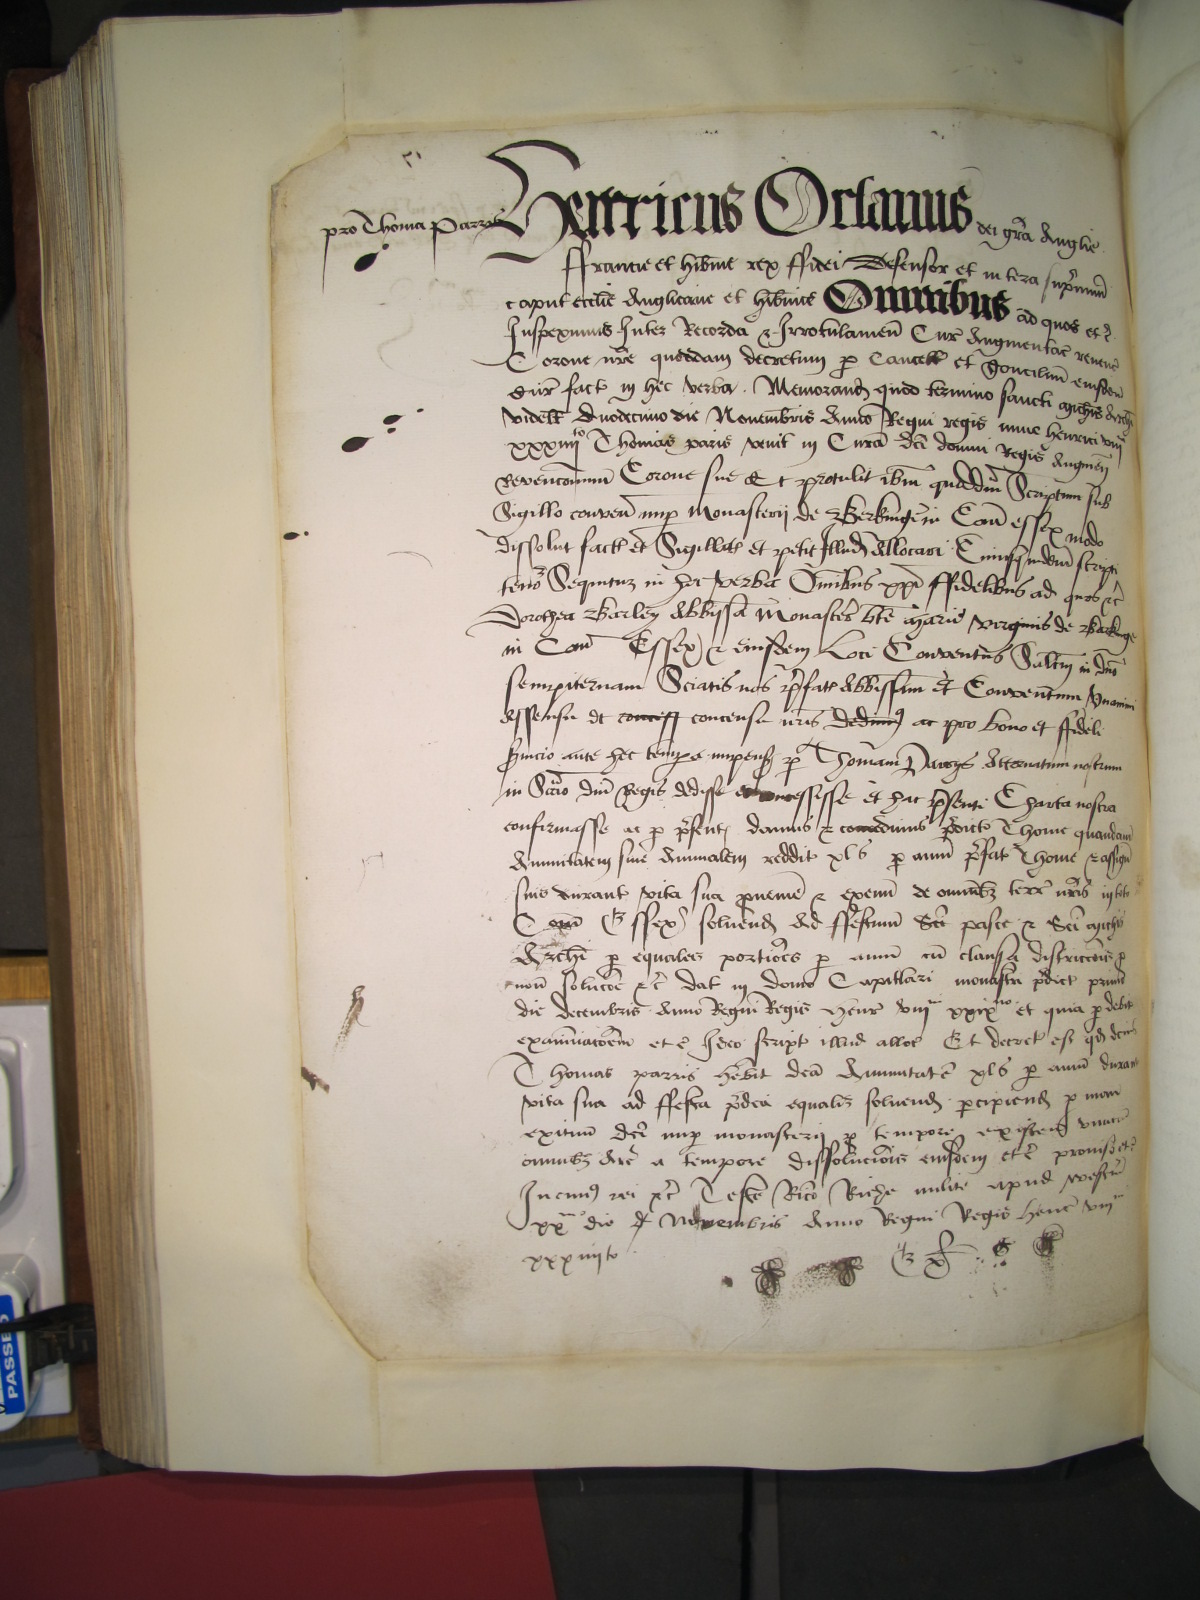 pro Thoma Parrys
Henricus Octavus dei gra Anglie
ffrancie et hibnie rex ffidei Defensor et in terra supremum
caput ecclie Anglicane et hibnice Omnibus ad quos etc
Inspeximus Inter Recorda & Irrotulamen Cur Augmentac revenc
Corone nre quoddam decretum p Cancell et Concilium eiusdem
Cur fact in hec verba Memorand quod termino sancti michis Archi
videlt duodecimo die Novembris Anno Regni regis nunc henrici viij
xxxiiijto Thomas paris venit in Curia dci domini Regis Augmen
Revencionum Corone sue Et protulit ibm quoddam Scriptum sub
Sigillo conven nup Monasterij de Berking in Com essex modo
dissolut fact et Sigillat et petit Illud Allocari Cuiusquidem scripti
tenor Sequitur in hec verba Omnibus xpi ffidelibus ad quos etc
Dorothea Barley Abbissa Monaster bte marie virginis de Barking
in Com Essex & eiusdem Loci Conventus Saltm in dno
sempiternam Sciatis nos prefat Abbissam et Conventum Unanimi
Assensu et concess concensu nris dedimus ac pro bono et ffideli
svicio ante hec tempa impens p Thomam Parrys Attornatum nostrum
in Scacio dni Regis dedisse et concessisse et hac psenti Charta nostra
confirmasse ac p psent damus & concedimus pdicto Thome quandam
Annuitatem sive Annualem reddit xls p ann prefat Thome & assign
suis durant vita sua pvenien & exeun de omnibz terr nris in
Com Essex solvend Ad ffestum Sci pasce & Sci michis
Archi p equales porcoes p ann cu clausa districcois p
non solucoe etc dat in domo Capitlari monastri pdict primo
die decembris Anno Regni Regis Henr viij xxixno et quia p debit
examinacoem etc Ideo script illud alloc Et decret est qd
Thomas parris hebit dcam Annuitate xls p ann durant
vita sua ad ffesta pdca equalit solvend pcipiend p man
exituu dci nup monasterij p tempore existen unacum
omnibz Arr a tempore dissolucois eiusdem etc
In cuius rei etc Teste Rico Riche milite apud westm
xx die Novembris Anno Regni Regis Henr viij
xxxiiijto